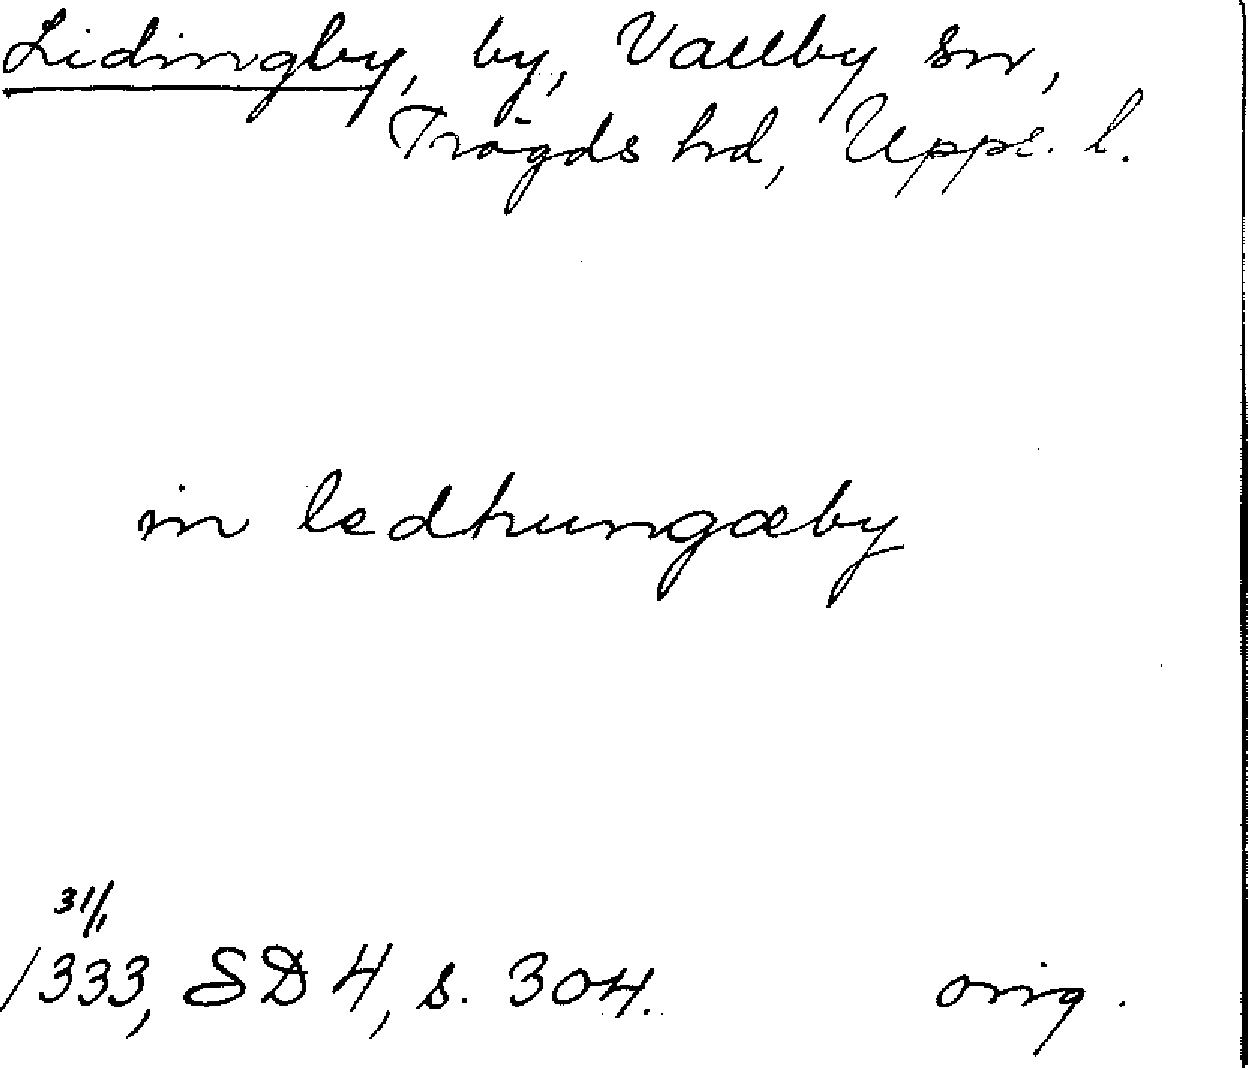 Lidingby, by, Vallby sn,
Trögds hd, Upps. l.
in ledhungæby
31/1
1333, SD 4, s. 304. orig.